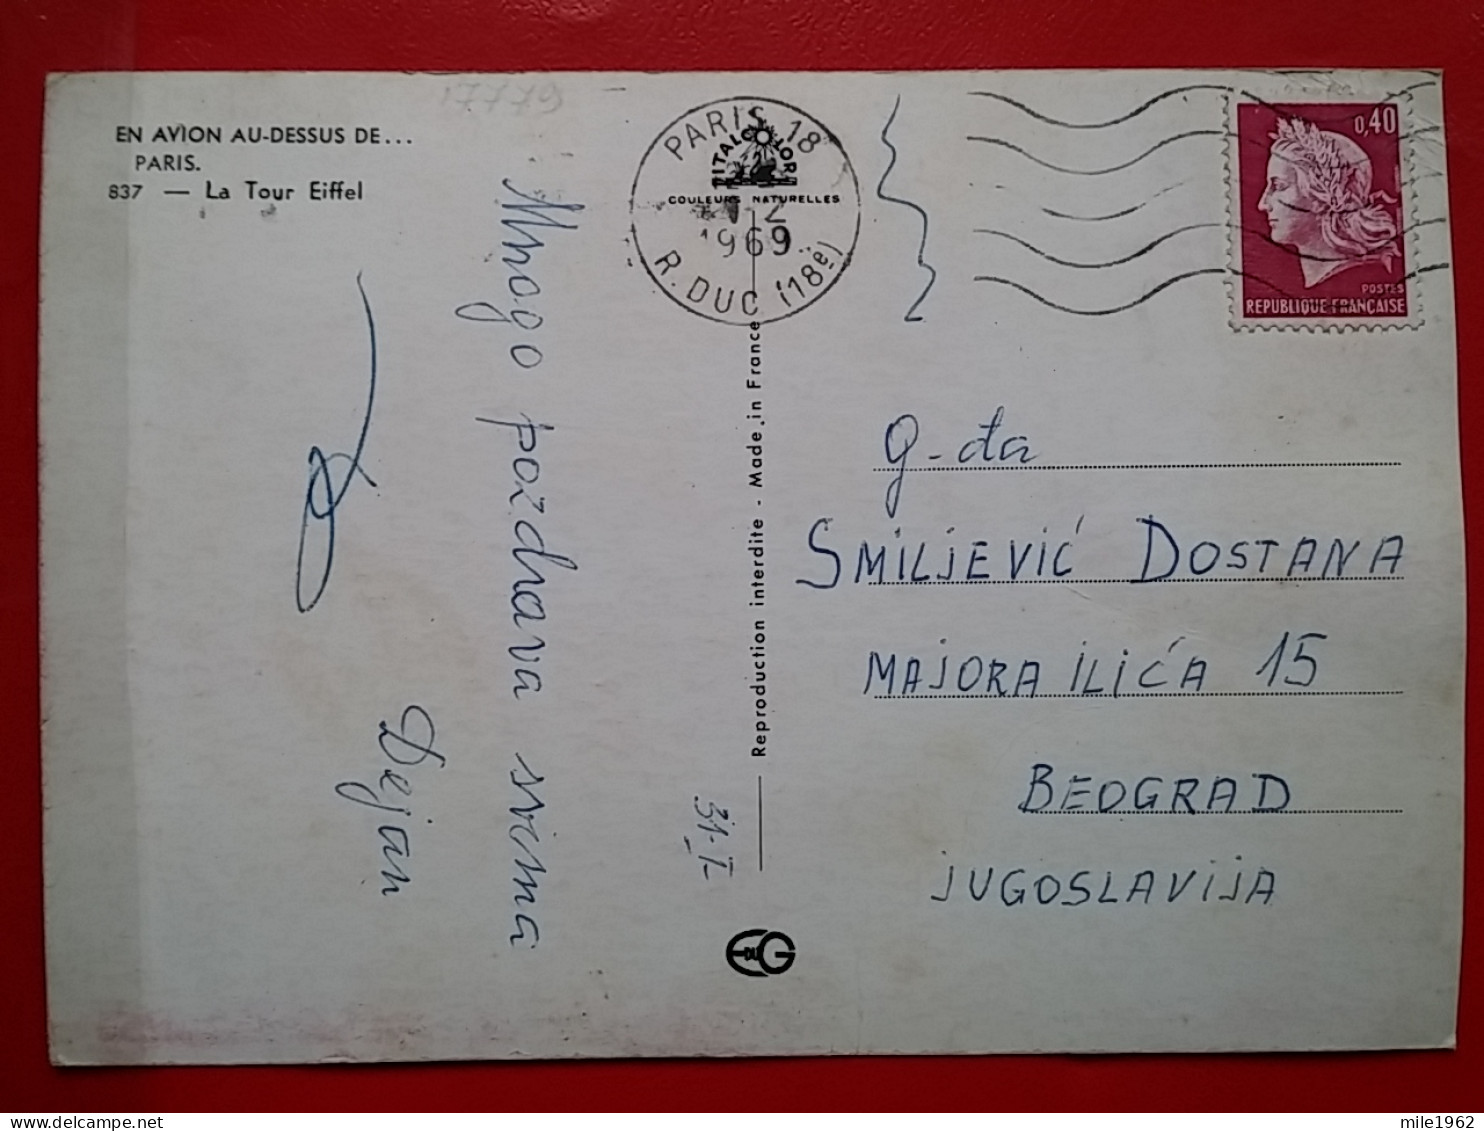 17779
EN AVION AU-DESSUS DE...
PARIS.
837 — La Tour Eiffel
Mnogo pozdrava svima
Dejan
31-I
PARIS 18
ITALCOLOR
COULEURS NATURELLES
2
1969
R. DUC (18e)
Reproduction interdite - Made in France
EDUG
0,40
POSTES
REPUBLIQUE FRANÇAISE
G-đa
SMILJEVIĆ DOSTANA
MAJORA ILIĆA 15
BEOGRAD
JUGOSLAVIJA
mile1962